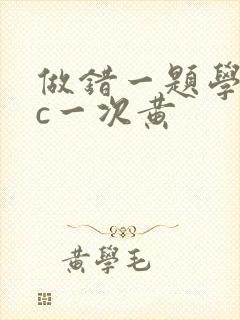 做錯一題學
c一次黃
黃學毛